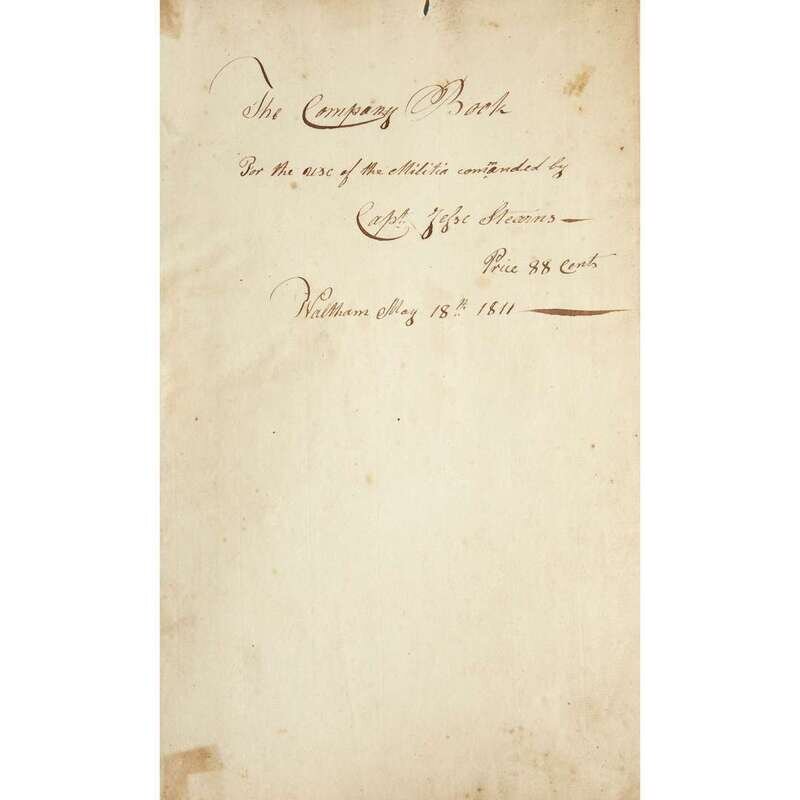 The Company Book
For the use of the Militia com̅anded by
Capt. Jesse Stearns —
Price 88 Cents
Waltham May 18th 1811 —